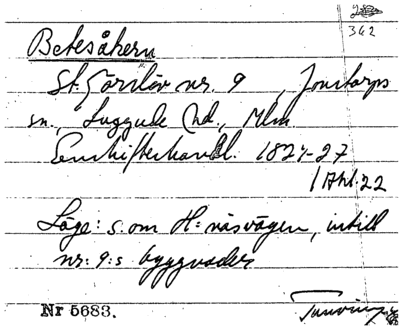 362
Betesåkern
St. Görslöv nr. 9, Jonstorps
sn., Luggude hd., Mlm
Enskifteshandl. 1824-27
1 Akt. 22
Läge: s. om H:näsvägen, intill
nr: 9:s byggnader
Nr 5683.